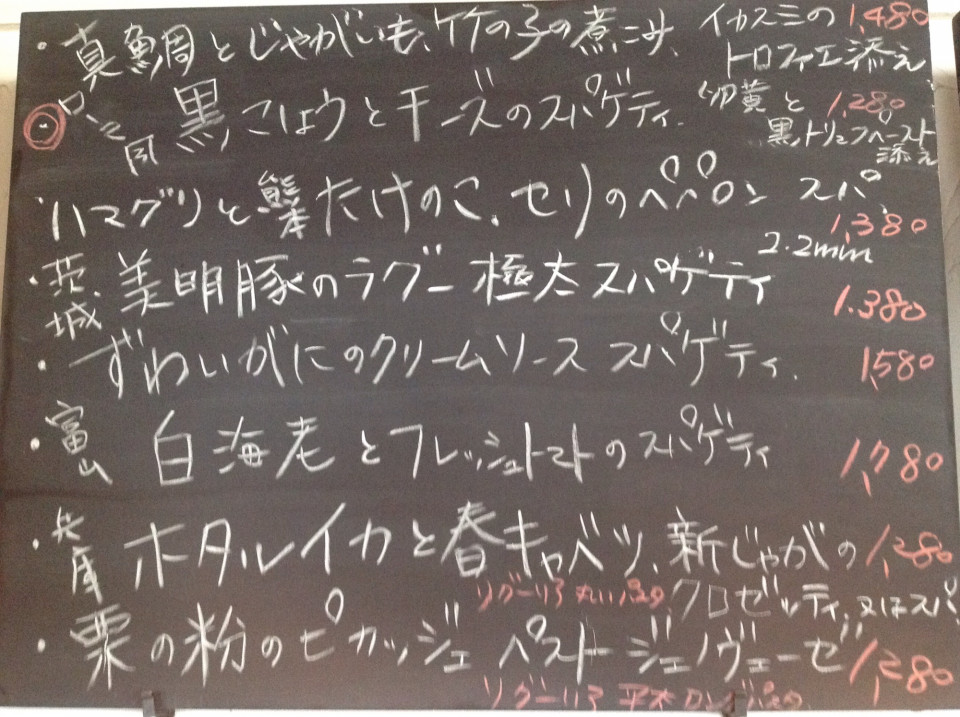 ・真鯛とじゃがいも、竹の子の煮込み、イカスミの 1,480
トロフィエ添え
ローマ風 黒こしょうとチーズのスパゲティ. 卵黄と 1,280
黒トリュフペースト
添え
・ハマグリと熊本たけのこ、セリのペペロン スパ. 1,380
2.2mm
・茨城 美明豚のラグー 極太スパゲティ 1,380
・ずわいがにのクリームソース スパゲティ. 1,580
・富山 白海老とフレッシュトマトのスパゲティ 1,780
・兵庫 ホタルイカと春キャベツ、新じゃがの 1,280
リグーリア 丸いパスタ クロゼッティ、又はスパ.
・栗の粉のピカッジェ ペストジェノヴェーゼ 1,280
リグーリア 平太ロングパスタ